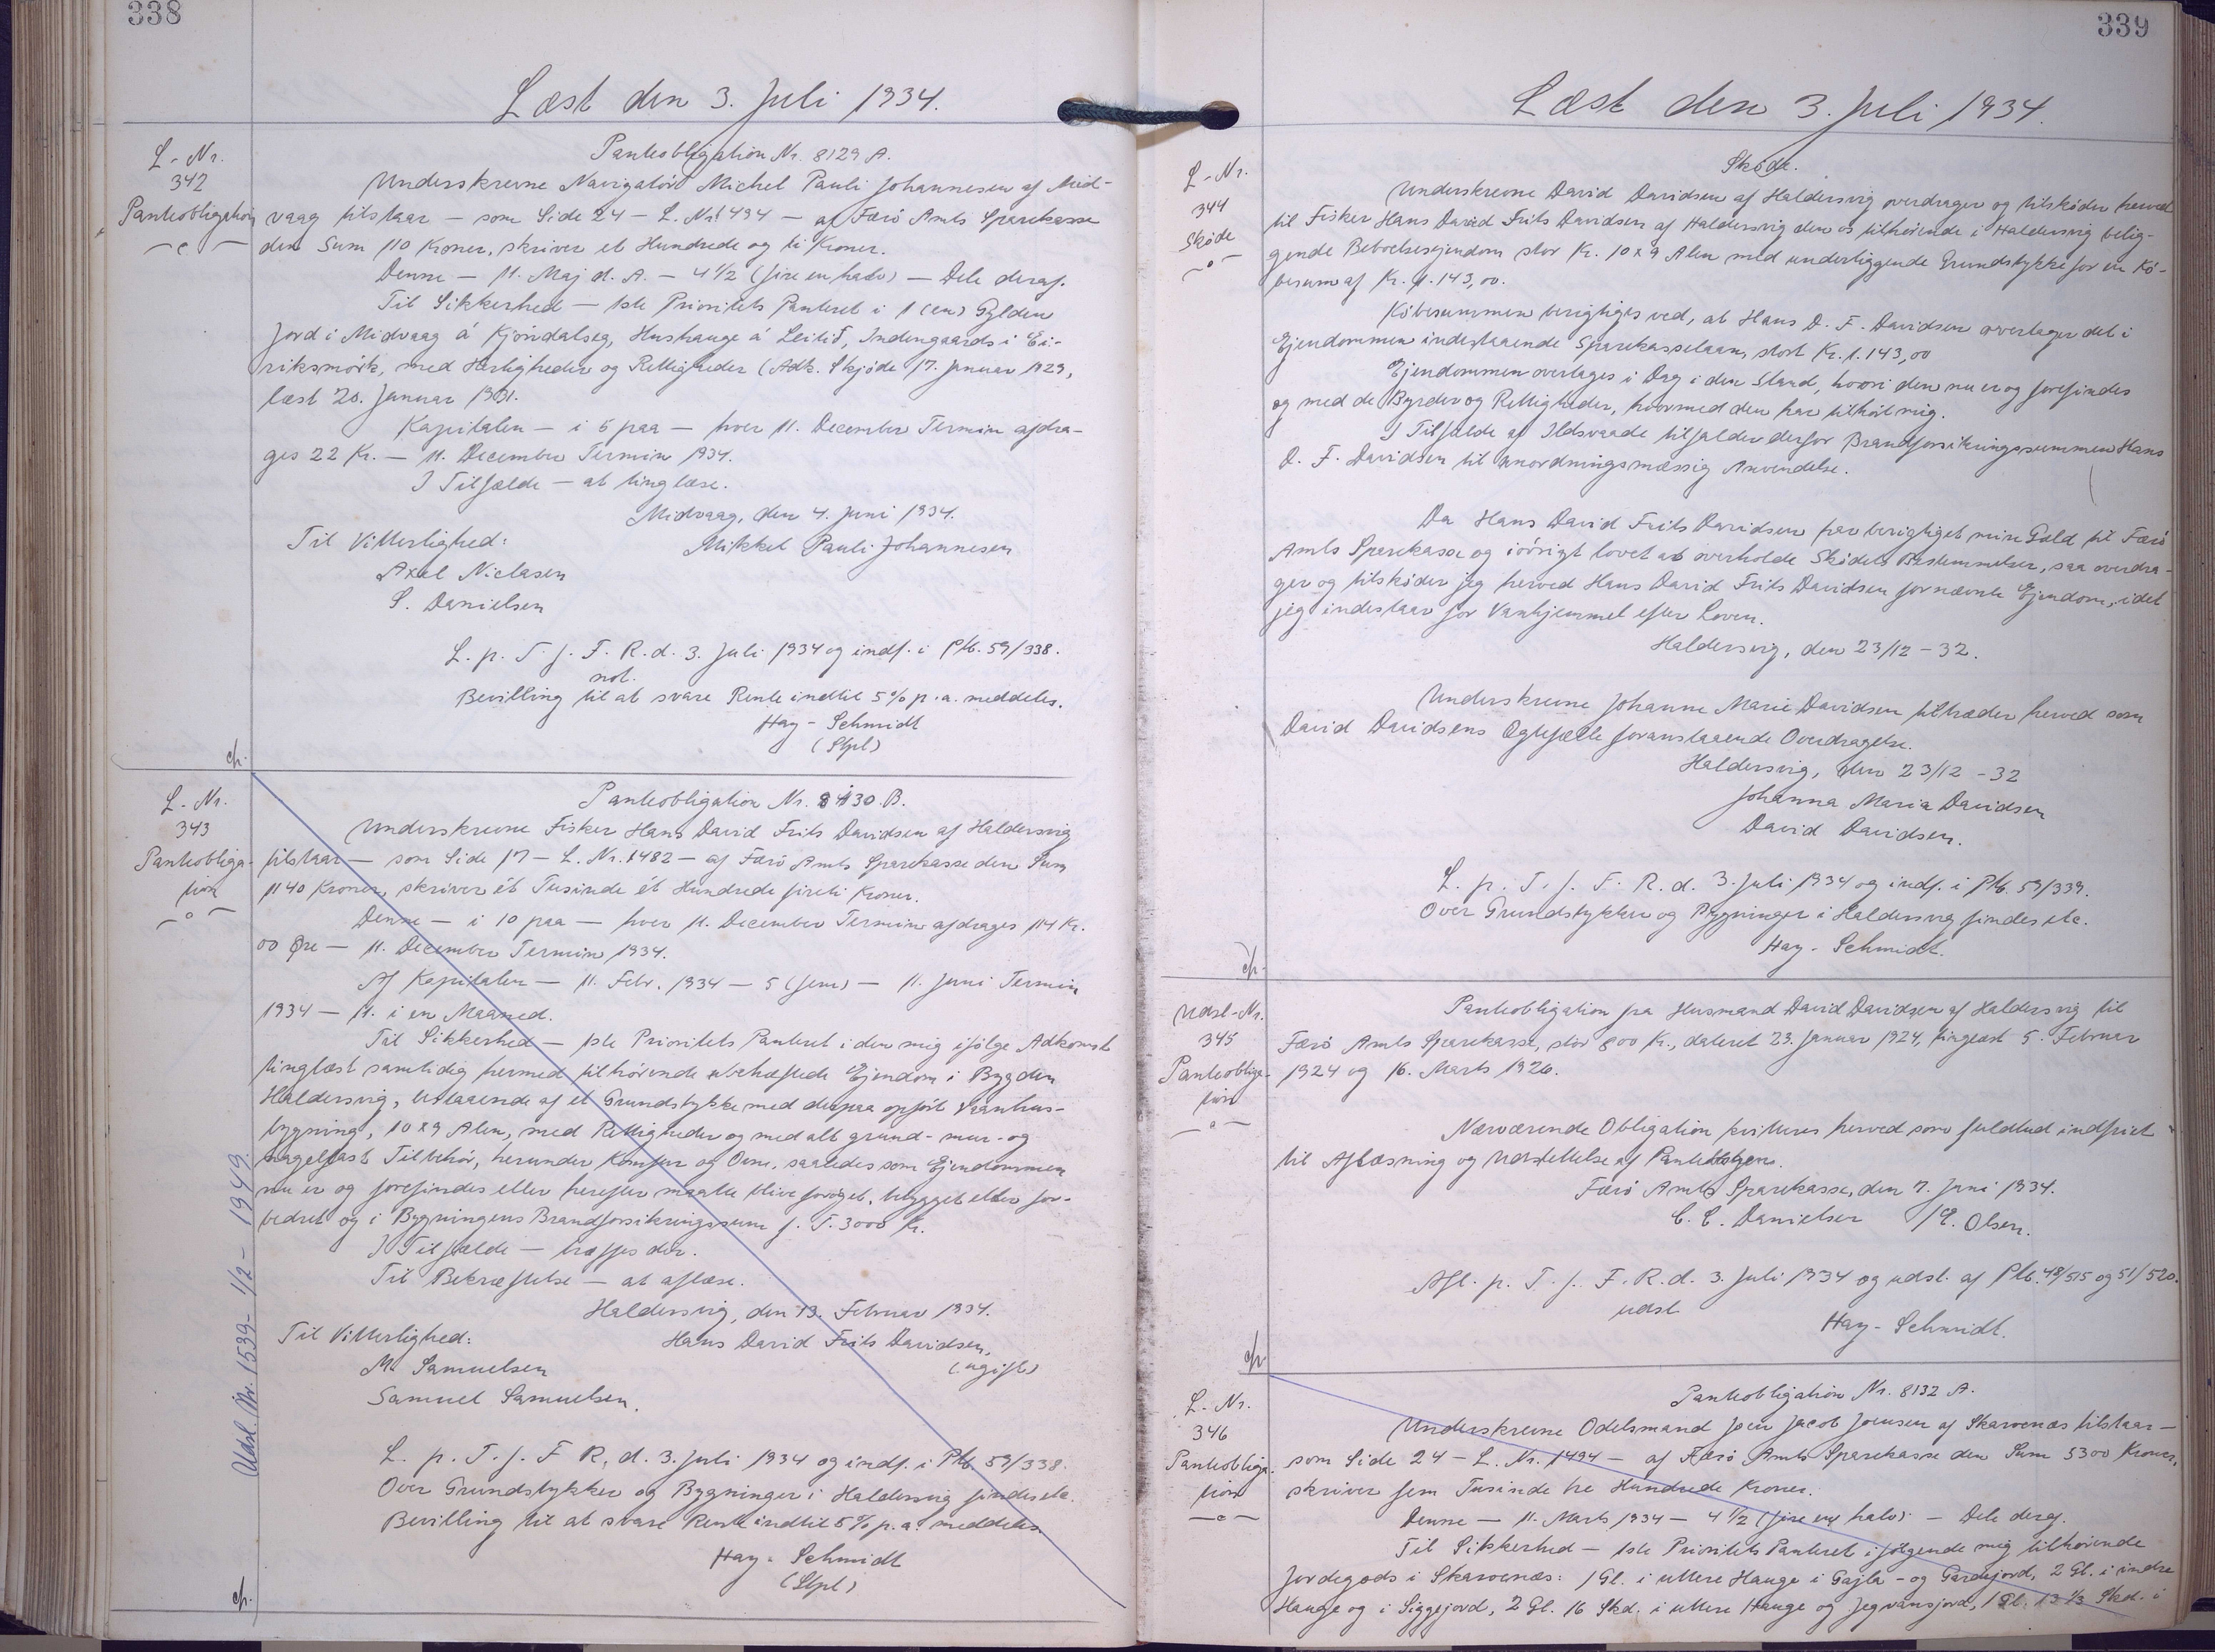 338
Læst den 3. Juli 1934.
L-Nr.
342
Panteobligation
Panteobligation Nr. 8129 A.
Underskrevne Navigatör Michel Pauli Johannesen af Mid-
vaag tilstaar — som Side 24 — L. Nr. 1494 — af Færö Amts Sparekasse
den Sum 110 Kroner, skriver et Hundrede og ti Kroner.
Denne — 11. Maj d. A. — 4 1/2 (fire en halv) — Dele deraf.
Til Sikkerhed — 1ste Prioritets Panteret i 1 (en) Gylden
Jord i Midvaag á Kjörsdalseg, Hushauge á Leitið, Indengaards i Ei-
riksmörk, med Herligheder og Rettigheder (Adk. Skjöde 17. Januar 1929,
læst 20. Januar 1931.
Kapitalen — i 5 paa — hver 11. December Termin afdra-
ges 22 Kr. — 11. December Termin 1934.
I Tilfælde — at tinglæse.
Midvaag, den 4. Juni 1934.
Til Vitterlighed: Mikkel Pauli Johannesen
Axel Niclasen
S. Danielsen
L. p. T. f. F. R. d. 3. Juli 1934 og indf. i Ptb. 59/338.
not.
Bevilling til at svare Rente indtil 5% p. a. meddeles.
Hay-Schmidt
(Stpl)
cfr.
L-Nr.
343
Panteobliga-
tion
Panteobligation Nr. 8130. B.
Underskrevne Fisker Hans David Frits Davidsen af Haldersvig
tilstaar — som Side 17 — L. Nr. 1482 — af Færö Amts Sparekasse den Sum
1140 Kroner, skriver ét Tusinde ét Hundrede firti Kroner.
Denne — i 10 paa — hver 11. December Termin afdrages 114 Kr.
00 Øre — 11. December Termin 1934.
Af Kapitalen — 11. Febr. 1934 — 5 (fem) — 11. Juni Termin
1934 — 11. i en Maaned.
Til Sikkerhed — 1ste Prioritets Panteret i den mig ifölge Adkomst
tinglæst samtidig hermed tilhörende ubehæftede Ejendom i Bygden
Haldersvig, bestaaende af et Grundstykke med derpaa opfört Vaanhus-
bygning, 10 x 9 Alen, med Rettigheder og med alt grund- mur- og
nagelfast Tilbehör, herunder Komfur og Ovne, saaledes som Ejendommen
nu er og forefindes eller herefter maatte blive foröget, bygget eller for-
bedret og i Bygningens Brandforsikringssum f. T. 3000 Kr.
I Tilfælde — træffes der.
Til Bekræftelse — at aflæse.
Haldersvig, den 13. Februar 1934.
Til Vitterlighed: Hans David Frits Davidsen,
M. Samuelsen (ugift)
Samuel Samuelsen.
L. p. T. f. F. R. d. 3. Juli 1934 og indf. i Ptb. 59/338.
Over Grundstykker og Bygninger i Haldersvig findes etc.
Bevilling til at svare Rente indtil 5% p. a. meddeles.
Hay-Schmidt
(Stpl)
cfr.
Udsl. Nr. 1539- 1/2 - 1949.
339
Læst den 3. Juli 1934.
L-Nr.
344
Sköde
Sköde.
Underskrevne David Davidsen af Haldersvig overdrager og tilsköder herved
til Fisker Hans David Frits Davidsen af Haldersvig den os tilhörende i Haldersvig belig-
gende Beboelsesejendom stor Kr. 10 x 9 Alen med underliggende Grundstykke for en Kö-
besum af Kr. 1.143,00.
Köbesummen berigtiges ved, at Hans D. F. Davidsen overtager det i
Ejendommen indestaaende Sparekasselaan, stort Kr. 1.143,00
Ejendommen overtages i Dag i den Stand, hvori den nu er og forefindes
og med de Byrder og Rettigheder, hvormed den har tilhört mig.
I Tilfælde af Ildsvaade tilfalder derfor Brandforsikringssummen Hans
D. F. Davidsen til anordningsmæssig Anvendelse.
Da Hans David Frits Davidsen har berigtiget min Gæld til Færö
Amts Sparekasse og iövrigt lovet at overholde Sködets Bestemmelser, saa overdra-
ger og tilsköder jeg herved Hans David Frits Davidsen fornævnte Ejendom, idet
jeg indestaar for Vanhjemmel efter Loven.
Haldersvig, den 23/12 - 32.
Underskrevne Johanne Marie Davidsen tiltræder herved som
David Davidsens Ægtefælle foranstaaende Overdragelse.
Haldersvig, den 23/12 - 32
Johanna Maria Davidsen
David Davidsen.
L. p. T. f. F. R. d. 3. Juli 1934 og indf. i Ptb. 59/339.
Over Grundstykker og Bygninger i Haldersvig findes etc.
Hay-Schmidt.
cfr.
Udsl-Nr.
345
Panteobliga-
tion
Panteobligation fra Husmand David Davidsen af Haldersvig til
Færö Amts Sparekasse, stor 800 Kr., dateret 23. Januar 1924, tinglæst 5. Februar
1924 og 16. Marts 1926.
Nærværende Obligation kvitteres herved som fuldtud indfriet
til Aflæsning og Udslettelse af Pantebogen.
Færö Amts Sparekasse, den 7. Juni 1934.
C. C. Danielsen /E. Olsen.
Afl. p. T. f. F. R. d. 3. Juli 1934 og udsl. af Ptb. 48/515 og 51/520.
udsl.
Hay-Schmidt.
cfr.
L-Nr.
346
Panteobliga-
tion
Panteobligation Nr. 8132 A.
Underskrevne Odelsmand Joen Jacob Joensen af Skarvenæs tilstaar —
som Side 24 — L. Nr. 1494 — af Færö Amts Sparekasse den Sum 5300 Kroner,
skriver fem Tusinde tre Hundrede Kroner.
Denne — 11. Marts 1934 — 4 1/2 (fire en halv) — Dele deraf.
Til Sikkerhed — 1ste Prioritets Panteret i fölgende mig tilhörende
Jordegods i Skarvenæs: 1 Gl. i uttere Hauge i Gajla - og Gardejord, 2 Gl. i indre
Hauge og i Siggejord, 2 Gl. 16 Skd. i uttere Hauge og Jegvansjord, 1 Gl. 13 1/3 Skd. i